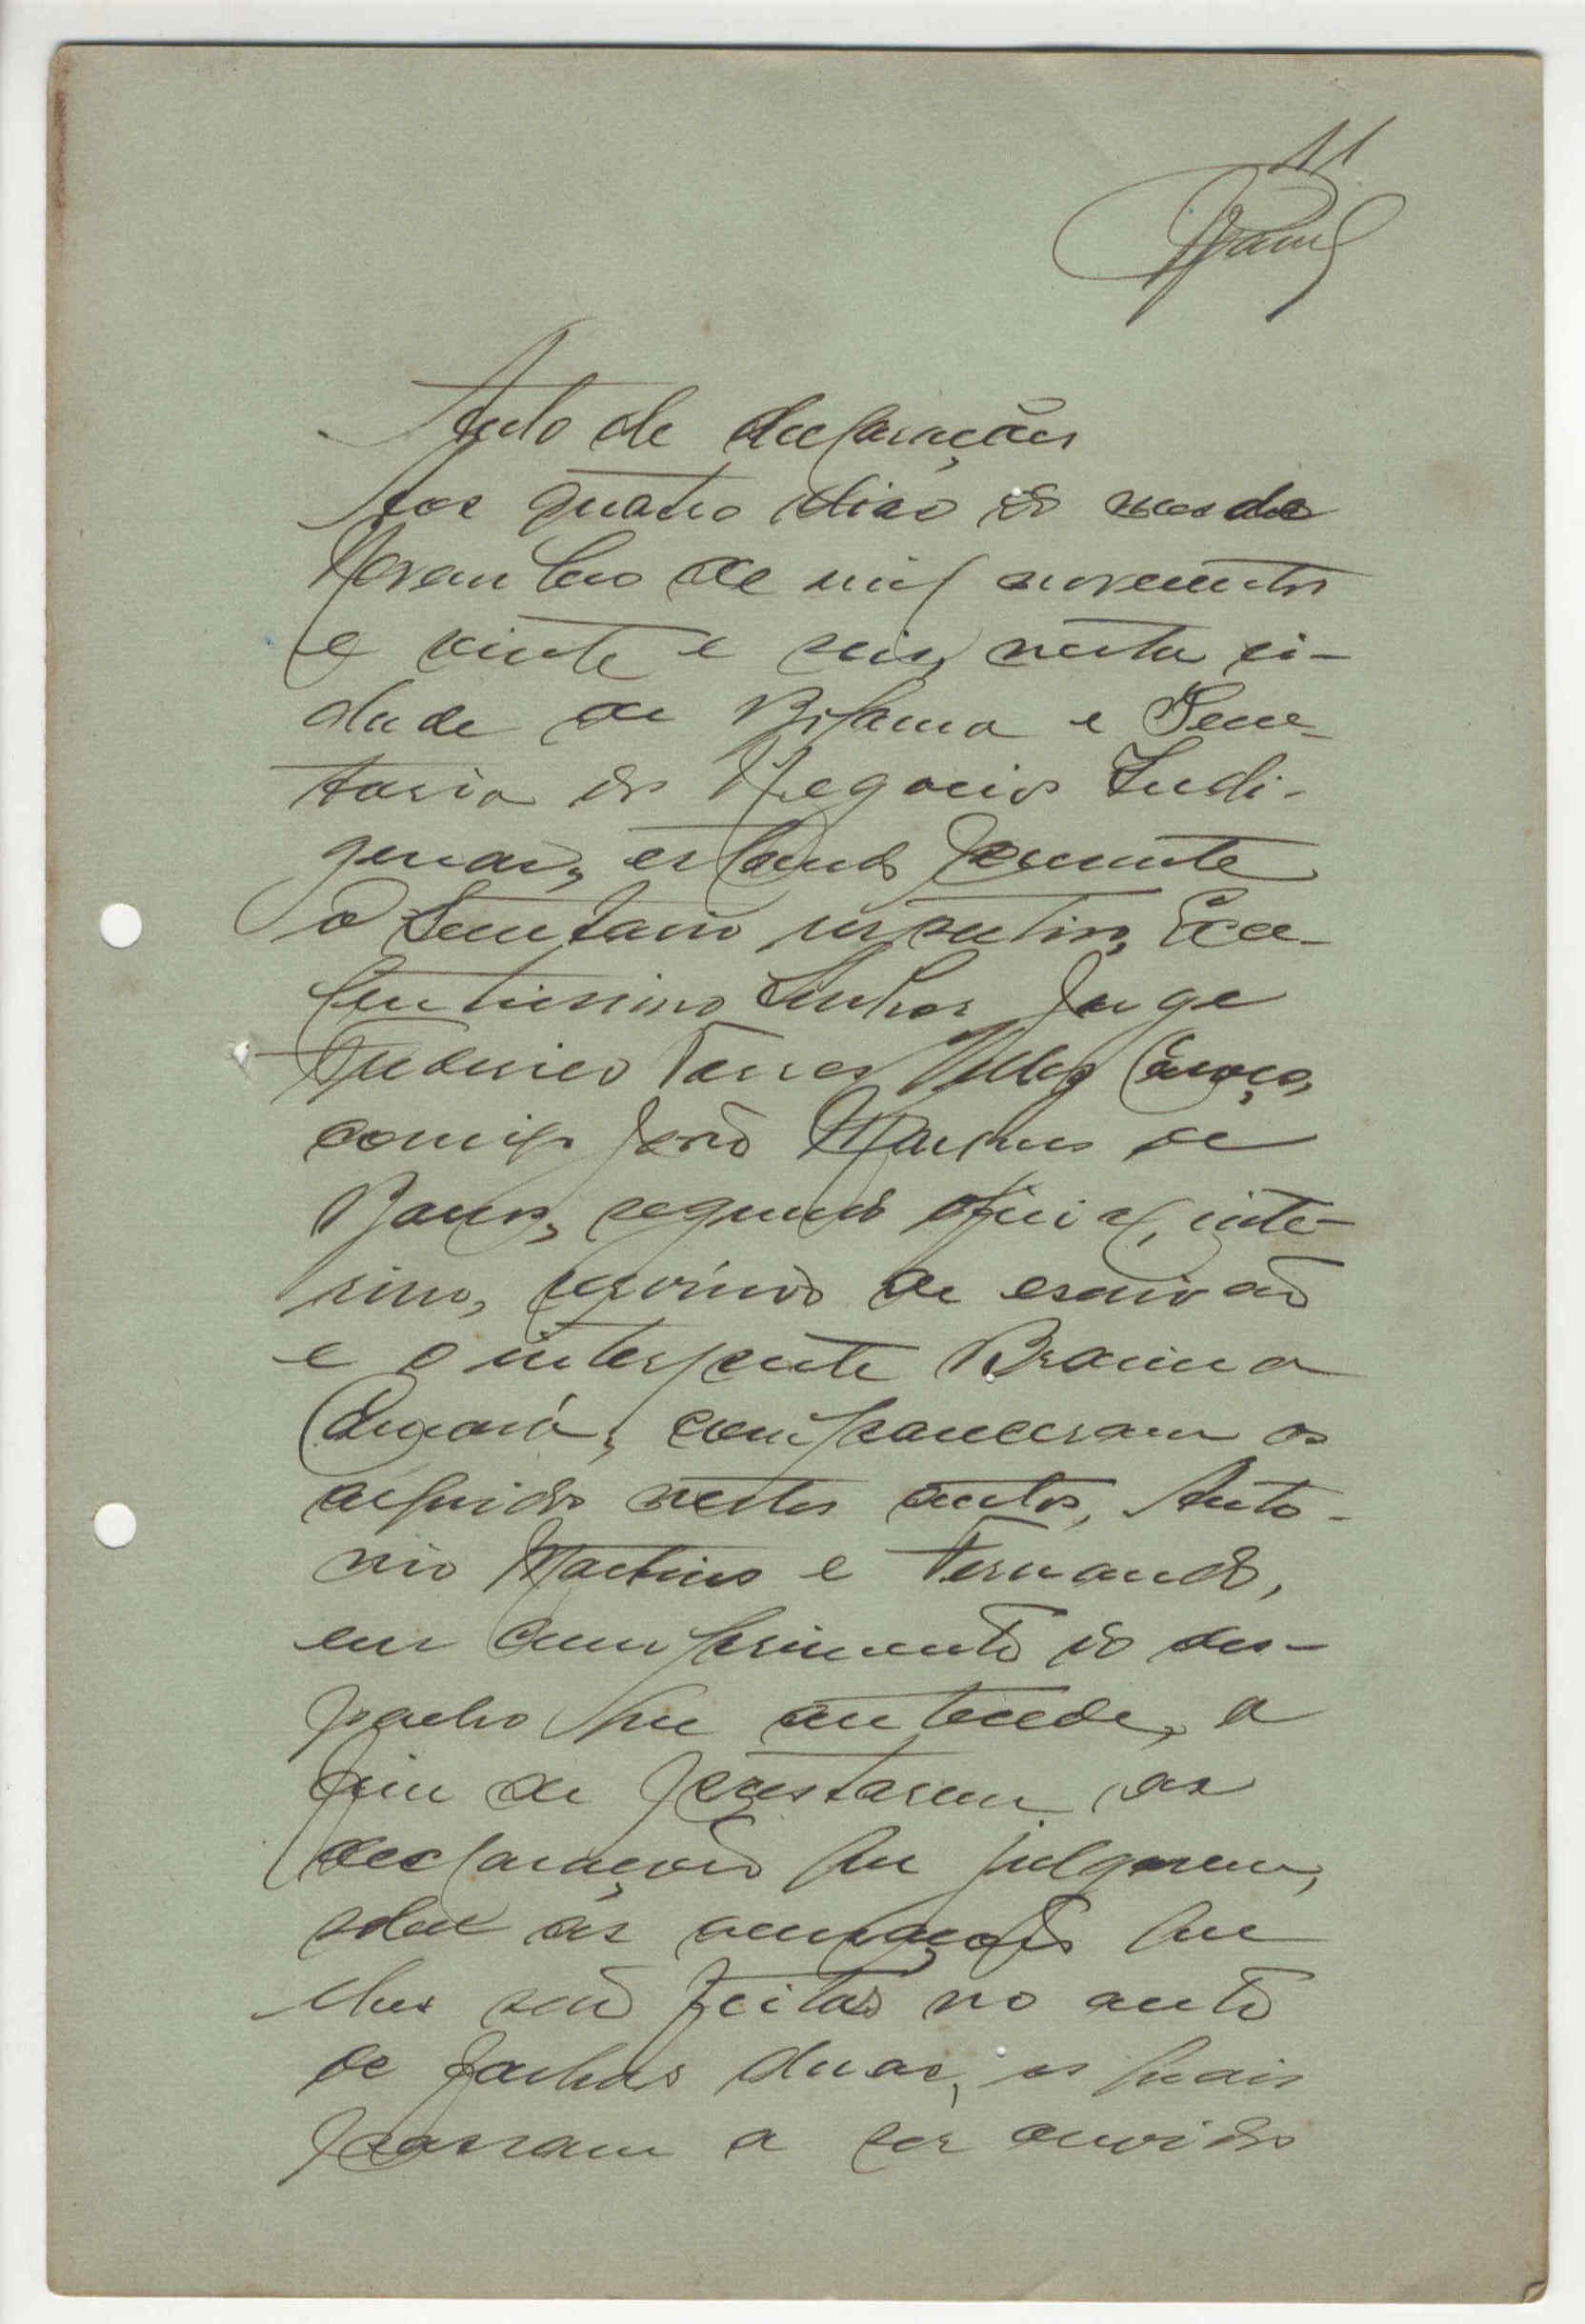 11
Auto de declarações
Aos quatro dias do mes de
Novembro de mil novecentos
e vinte e seis, nesta ci-
dade de Bolama e Secre-
taria dos Negocios Indi-
genas, estando presente
o Secretario respectivo, Exce-
lentissimo Senhor Jorge
Frederico Torres Velez Caroço,
comigo João Marques de
Barros, segundo oficial, inte-
rino, servindo de escrivão
e o interprete Braima
Camará, compareceram os
arguidos nestes autos, Anto-
nio Martins e Fernando,
em cumprimento do des-
pacho que antecede, a
fim de prestarem as
declarações que julgarem,
sobre as acusações que
lhes são feitas no auto
de folhas duas, os quais
passam a ser ouvidos